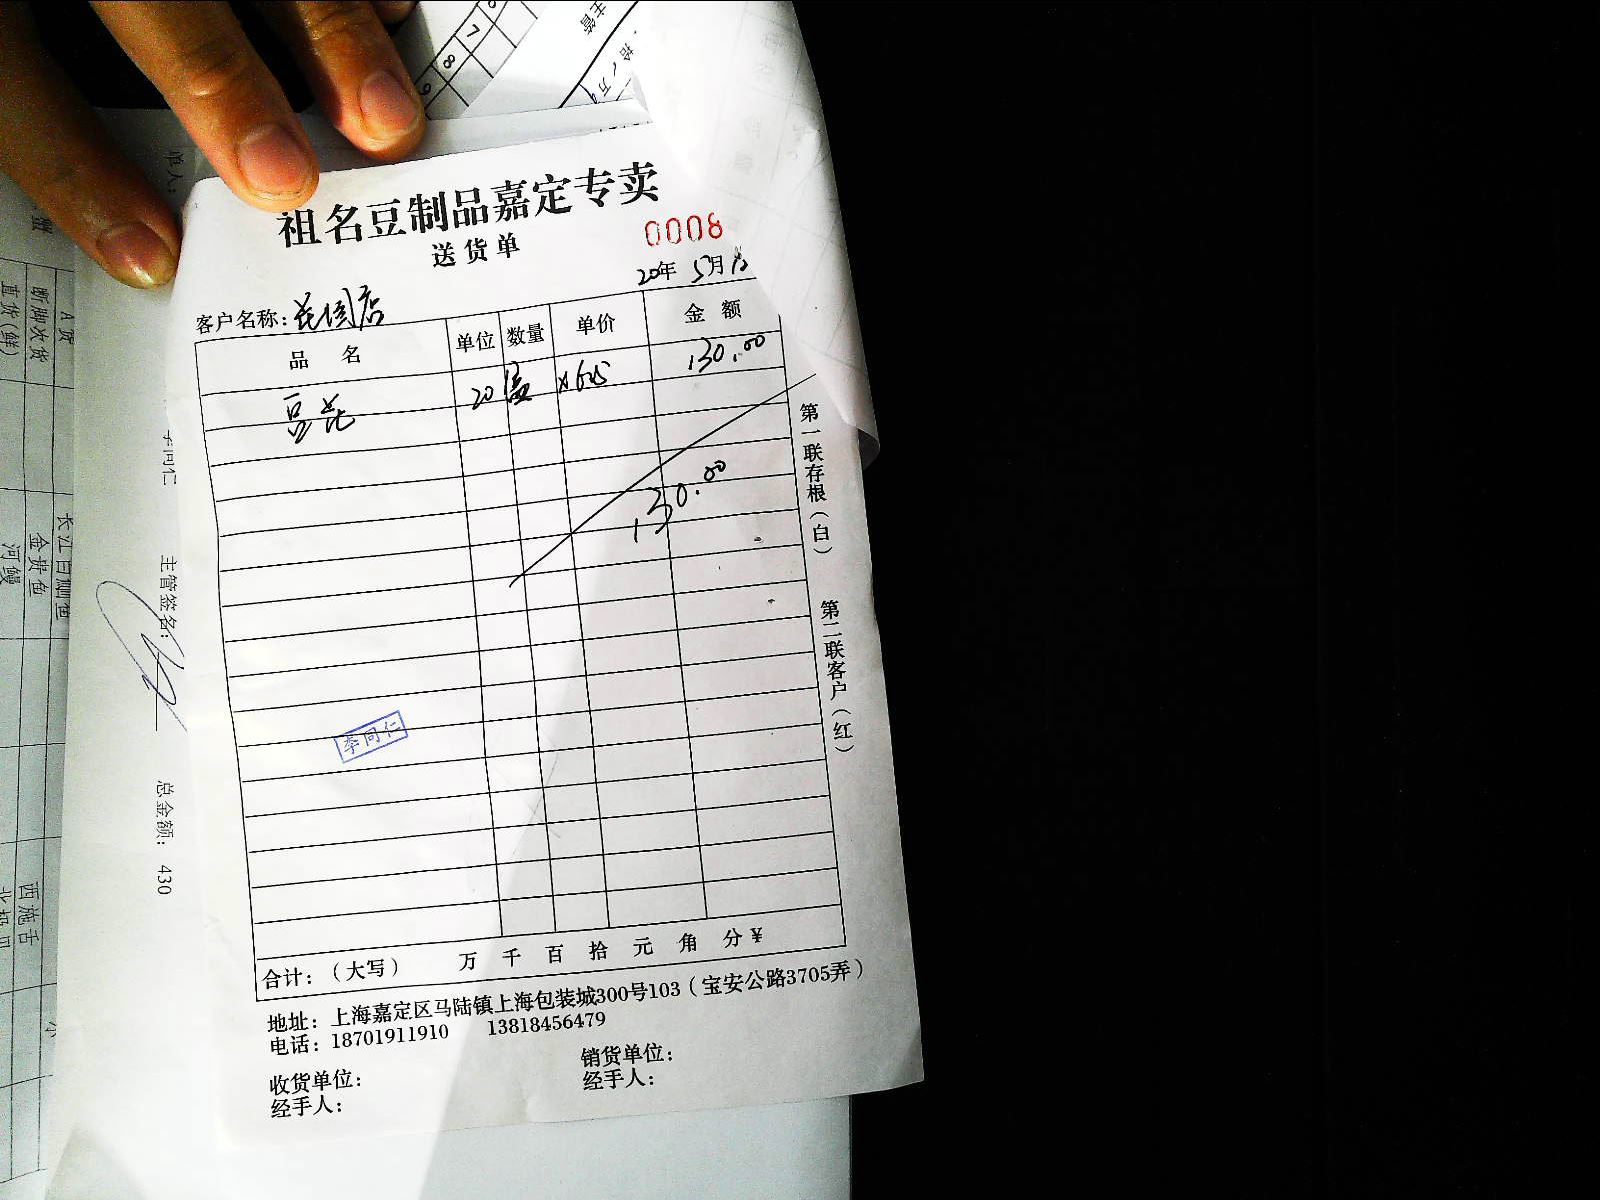 祖名豆制品嘉定专卖
送货单
0008
20年 5月
客户名称：花园店
品 名 单位 数量 单价 金 额
豆花 20 盒 ×6.5 130.00
130.00
第一联存根（白） 第二联客户（红）
李同仁
合计：（大写） 万 千 百 拾 元 角 分￥
地址：上海嘉定区马陆镇上海包装城300号103（宝安公路3705弄）
电话：18701911910 13818456479
收货单位： 销货单位：
经手人： 经手人：
单人：
主管签名：
总金额： 430
A货
断脚次货
直货(鲜)
金贵鱼
河鳗
西施舌
主管
7
8
9